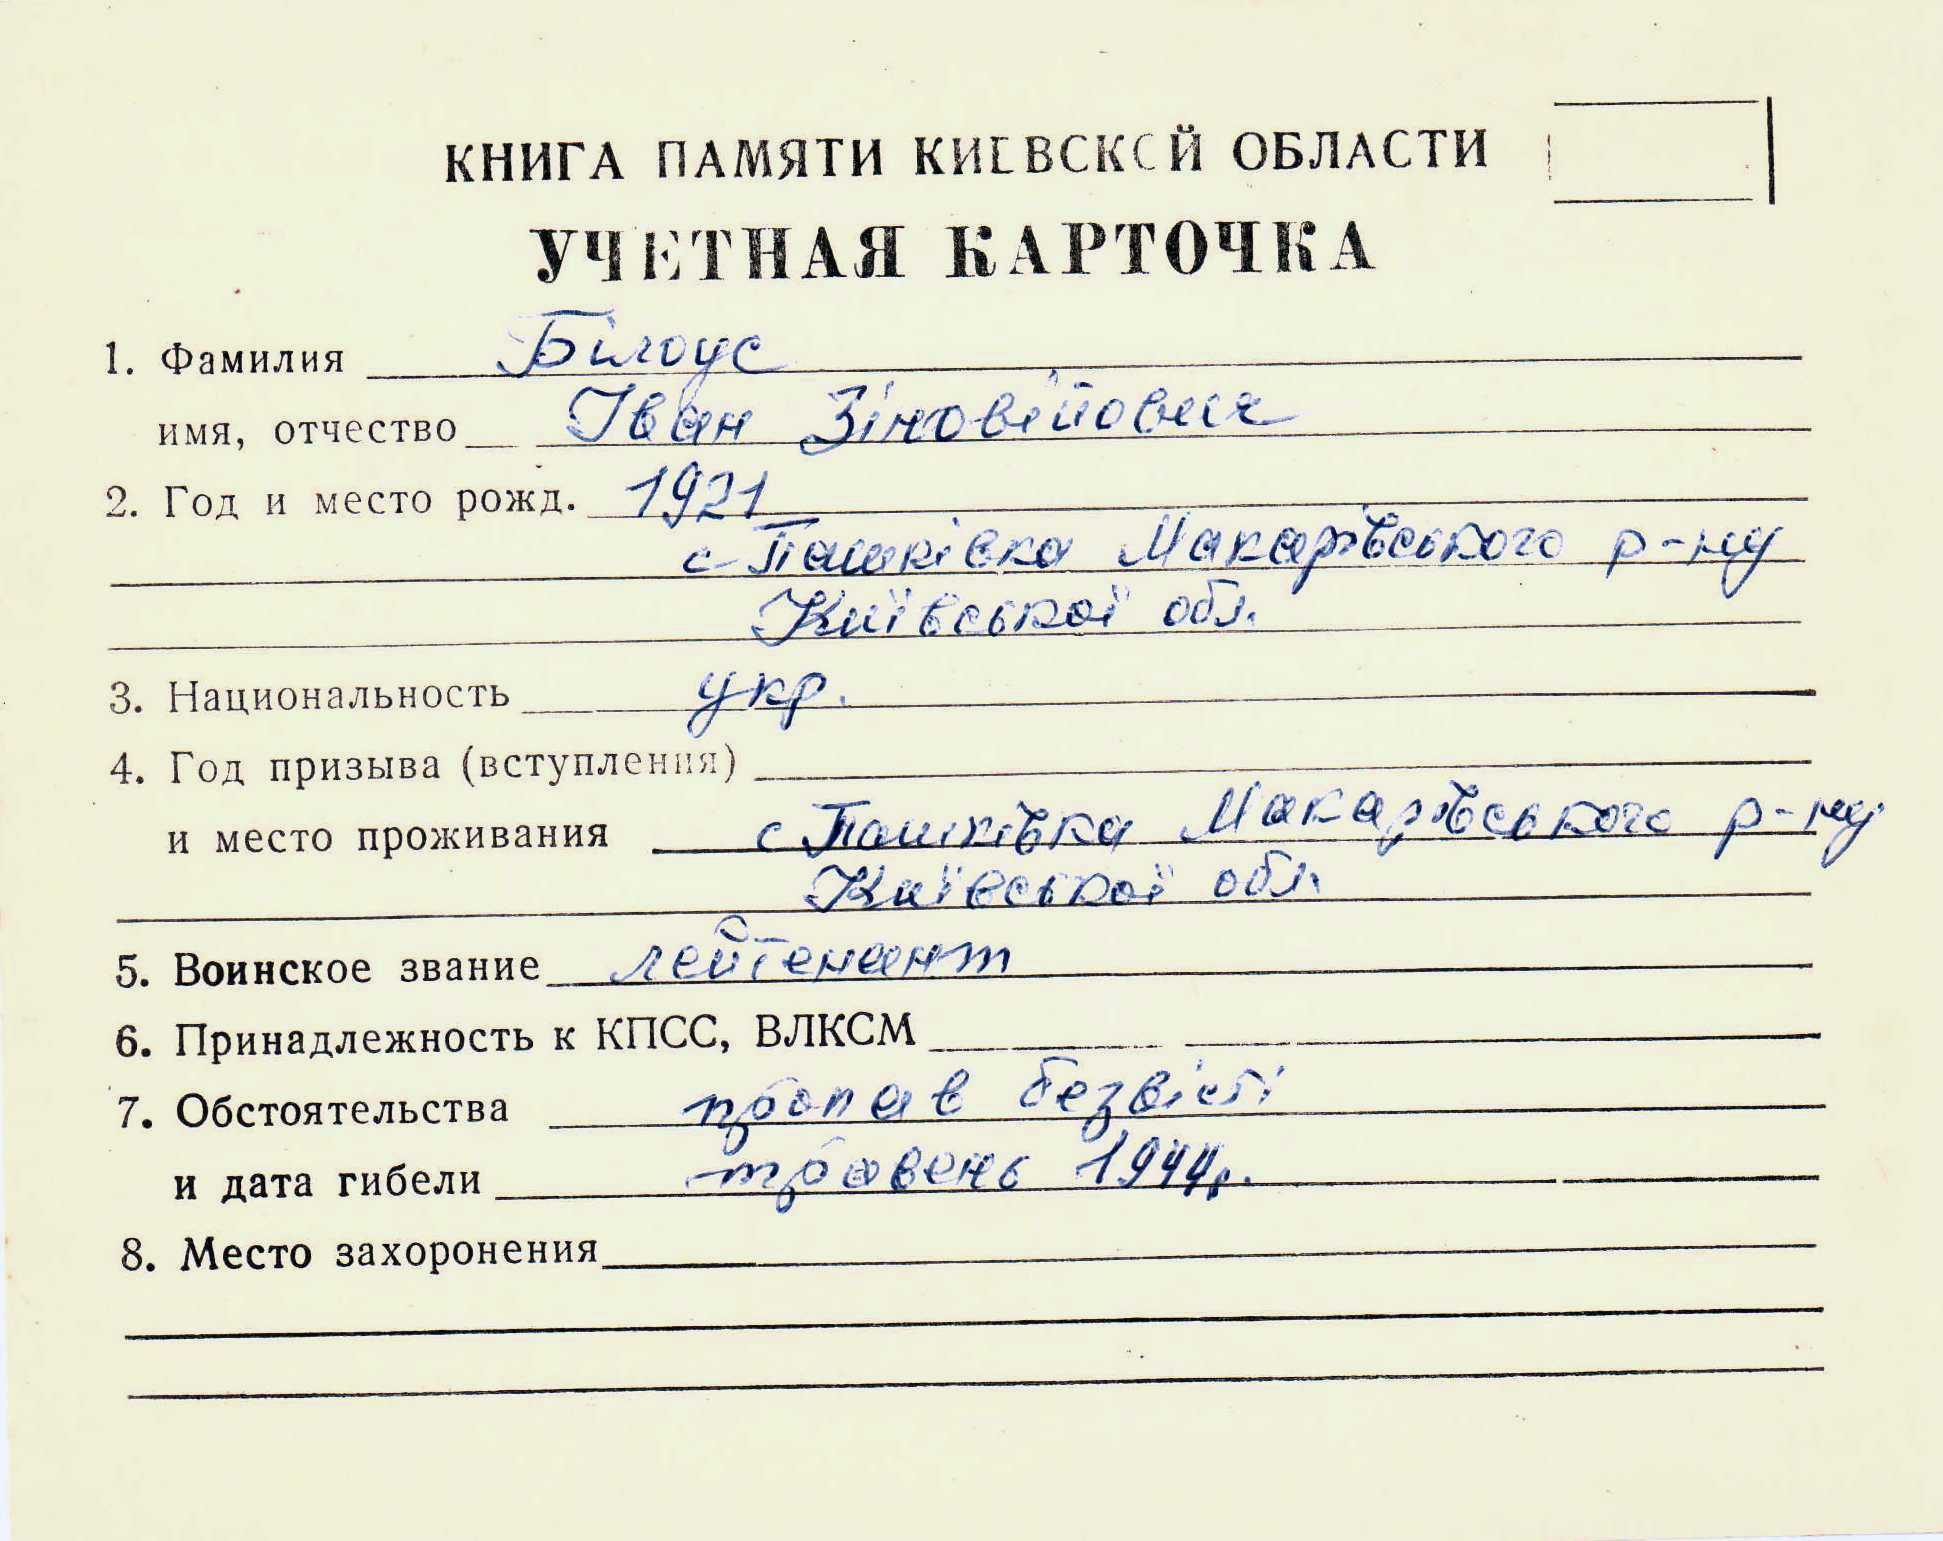 КНИГА ПАМЯТИ КИЕВСКОЙ ОБЛАСТИ
УЧЕТНАЯ КАРТОЧКА
1. Фамилия Білоус
имя, отчество Іван Зіновійович
2. Год и место рожд. 1921
с Пашківка Макарівського р-ну
Київської обл.
3. Национальность укр.
4. Год призыва (вступления)
и место проживания с Пашківка Макарівського р-ну
Київської обл.
5. Воинское звание лейтенант
6. Принадлежность к КПСС, ВЛКСМ
7. Обстоятельства пропав безвісті
и дата гибели травень 1944г.
8. Место захоронения